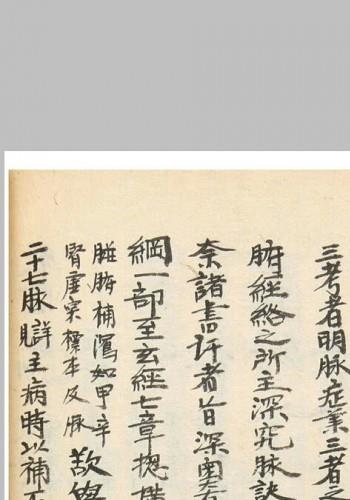 三考者明脉症業三者之
腑経絡之所主深究脉訣
奈諸書評者旨深南
綱一部至玄經七章揔
脏腑補瀉如甲辛
腎虚実標本反脉
歎
二十七脉辯主病時以補